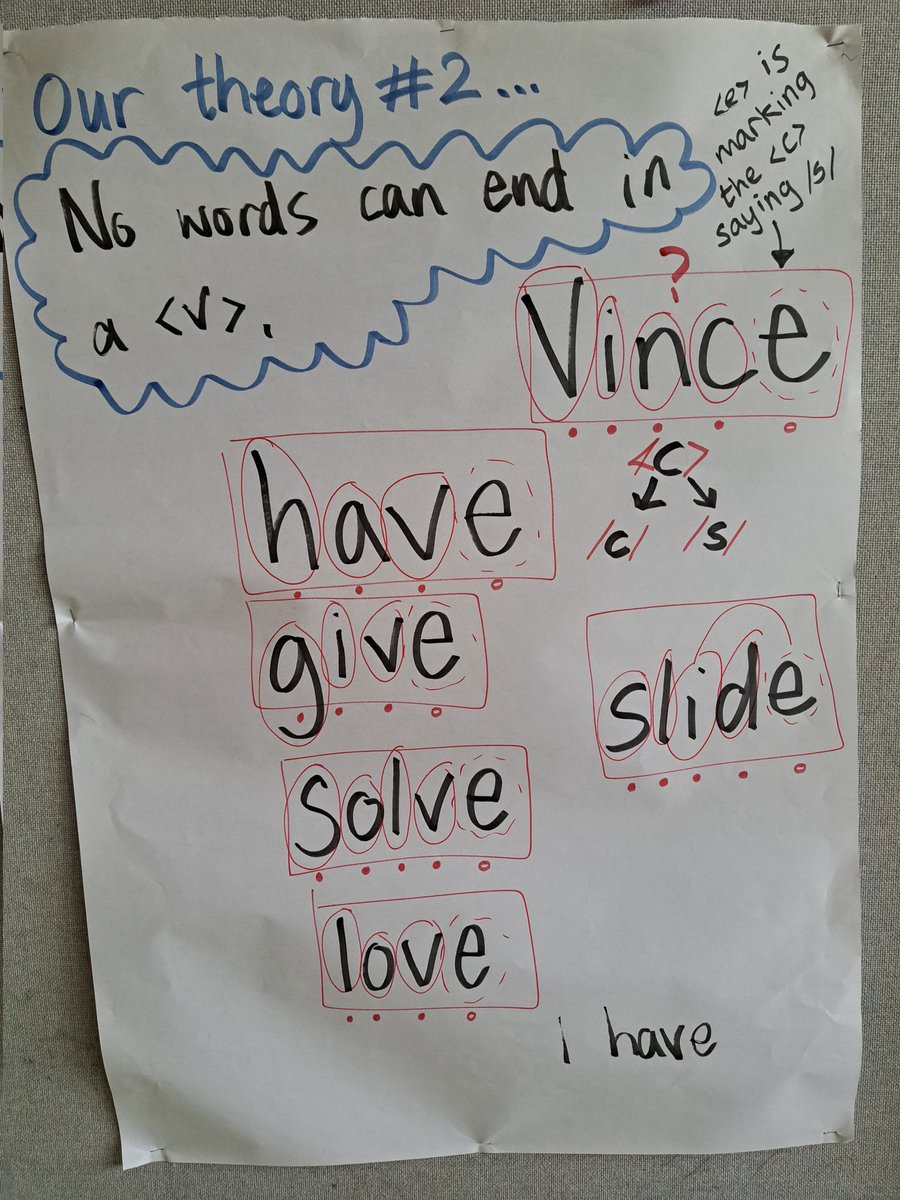 Our theory #2...
No words can end in
a <v>.
<e> is
marking
the <c>
saying /s/
?
Vince
<c>
/c/ /s/
have
give
slide
solve
love
I have